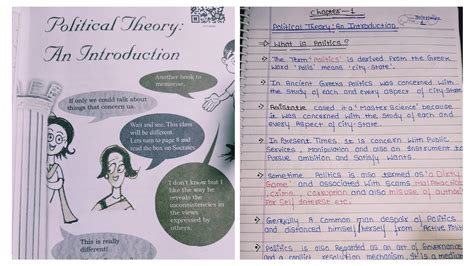 Political Theory:
An Introduction
Another book to
memorise.
If only we could talk about
things that concern us.
Wait and see. This class
will be different.
Lets turn to page 8 and
read the box on Socrates
I don't know but I
like the way he
reveals the
inconsistencies in
the views
expressed by
others.
This is really
different!
Chapter-1
Political Theory: An Introduction
What is Politics?
The Term 'Politics' is derived from the Greek
word 'Polis' means 'city-State'.
In Ancient Greeks Politics was concerned with
the study of each and every aspect of city-State.
Aristotle called it a 'Master Science' because
it was concerned with the study of each and
every Aspect of city-State.
In Present Times it is concern with Public
Services, Manipulation and also an Instrument to
Pursue ambition and Satisfy wants.
Sometime Politics is also termed as 'a Dirty
Game' and associated with Scams, Malpractice
, crime, corruption and also misuse of
for Self Interest etc.
Generally A common man despair of Politics
and distanced himself/herself from 'Active
Politics is also Regarded as an art of Governance
and a conflict resolution mechanism. It is a